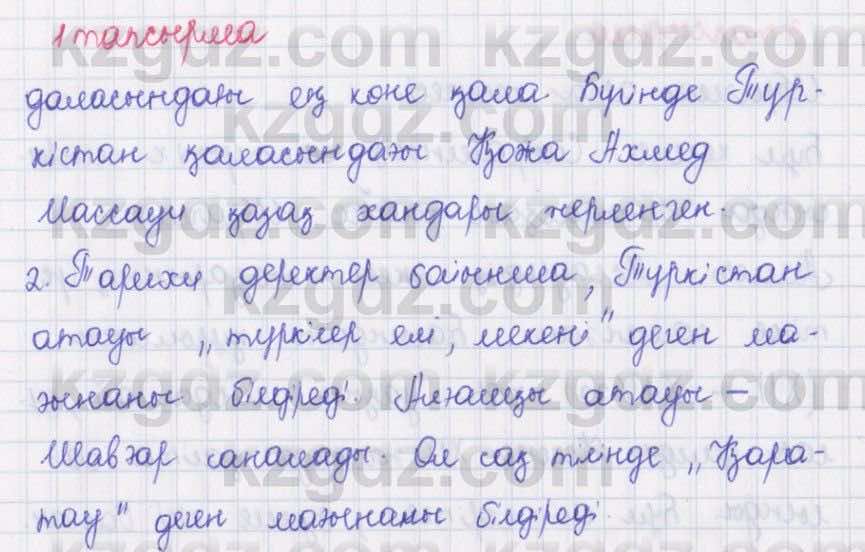 1 тапсырма
даласындағы ең көне қала Бүгінде Түр-
кістан қаласындағы Қожа Ахмед
Иассауи қазақ хандары жерленген.
2. Тарихи деректер бойынша, Түркістан
атауы „түркілер елі, мекені" деген ма-
ғынаны білдіреді. Алғашқы атауы –
Шавғар саналады. Ол сақ тілінде „Қара-
тау" деген мағынаны білдіреді.
kzgdz.com